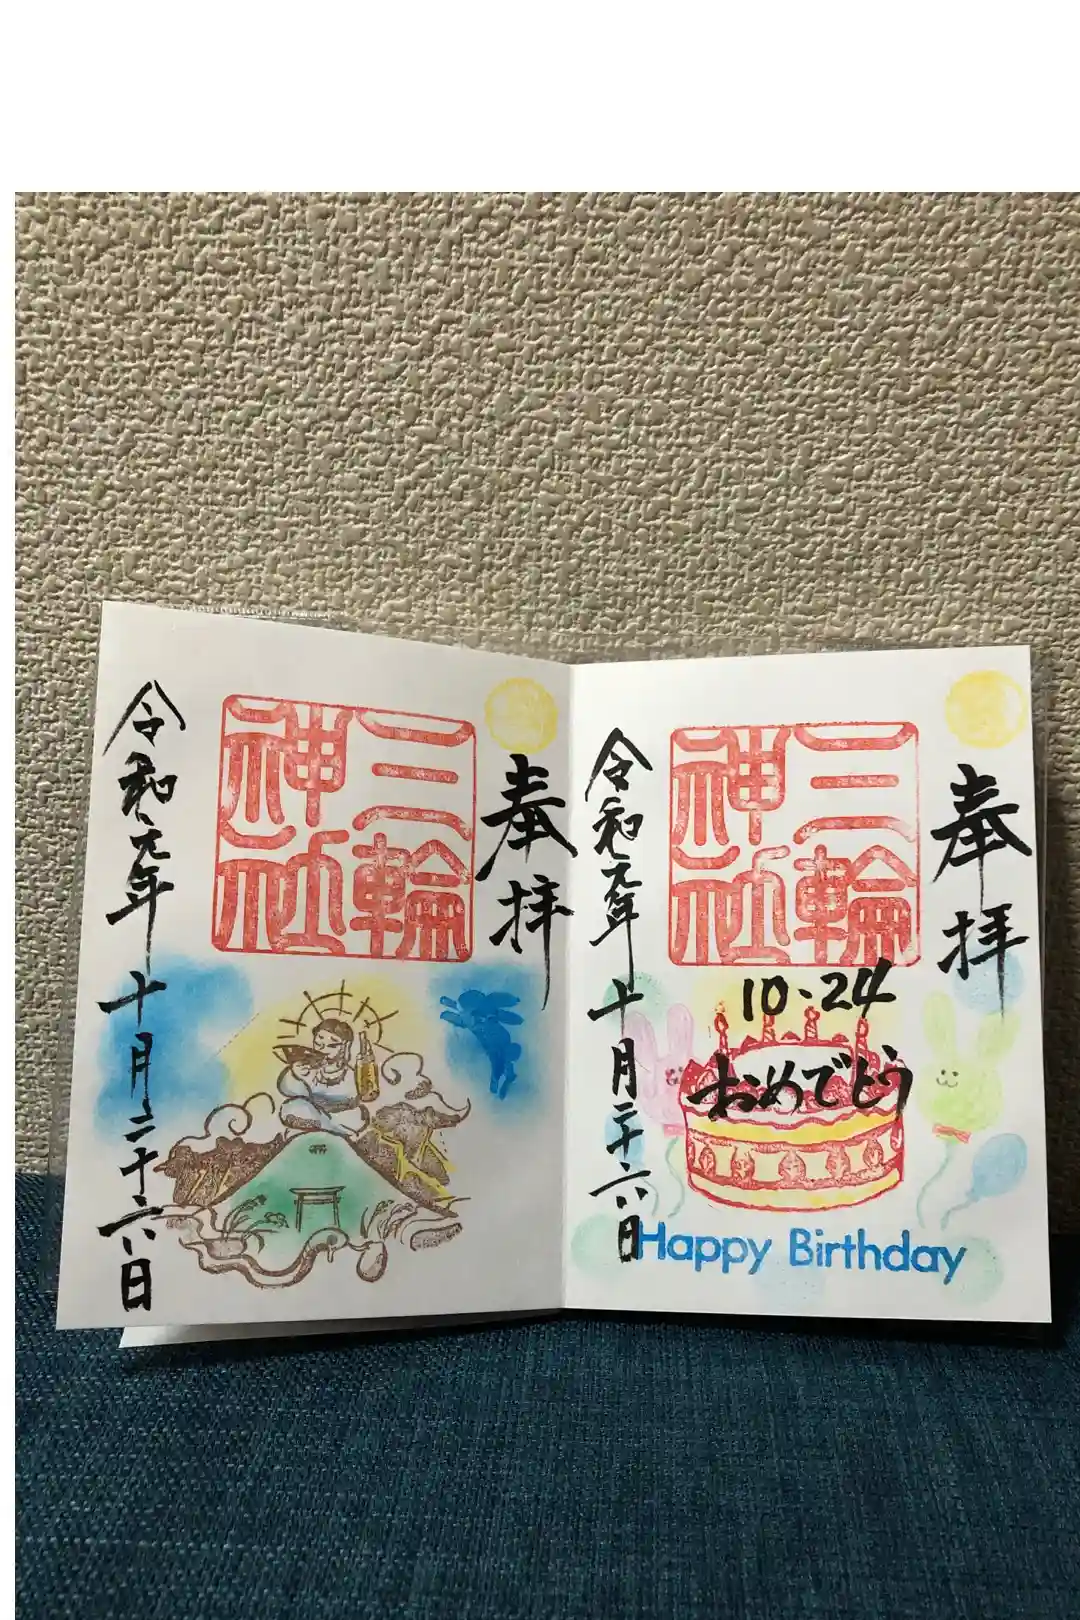 奉拝
三輪
神社
10.24
おめでとう
Happy Birthday
令和元年十月二十六日
奉拝
三輪
神社
令和元年十月二十六日